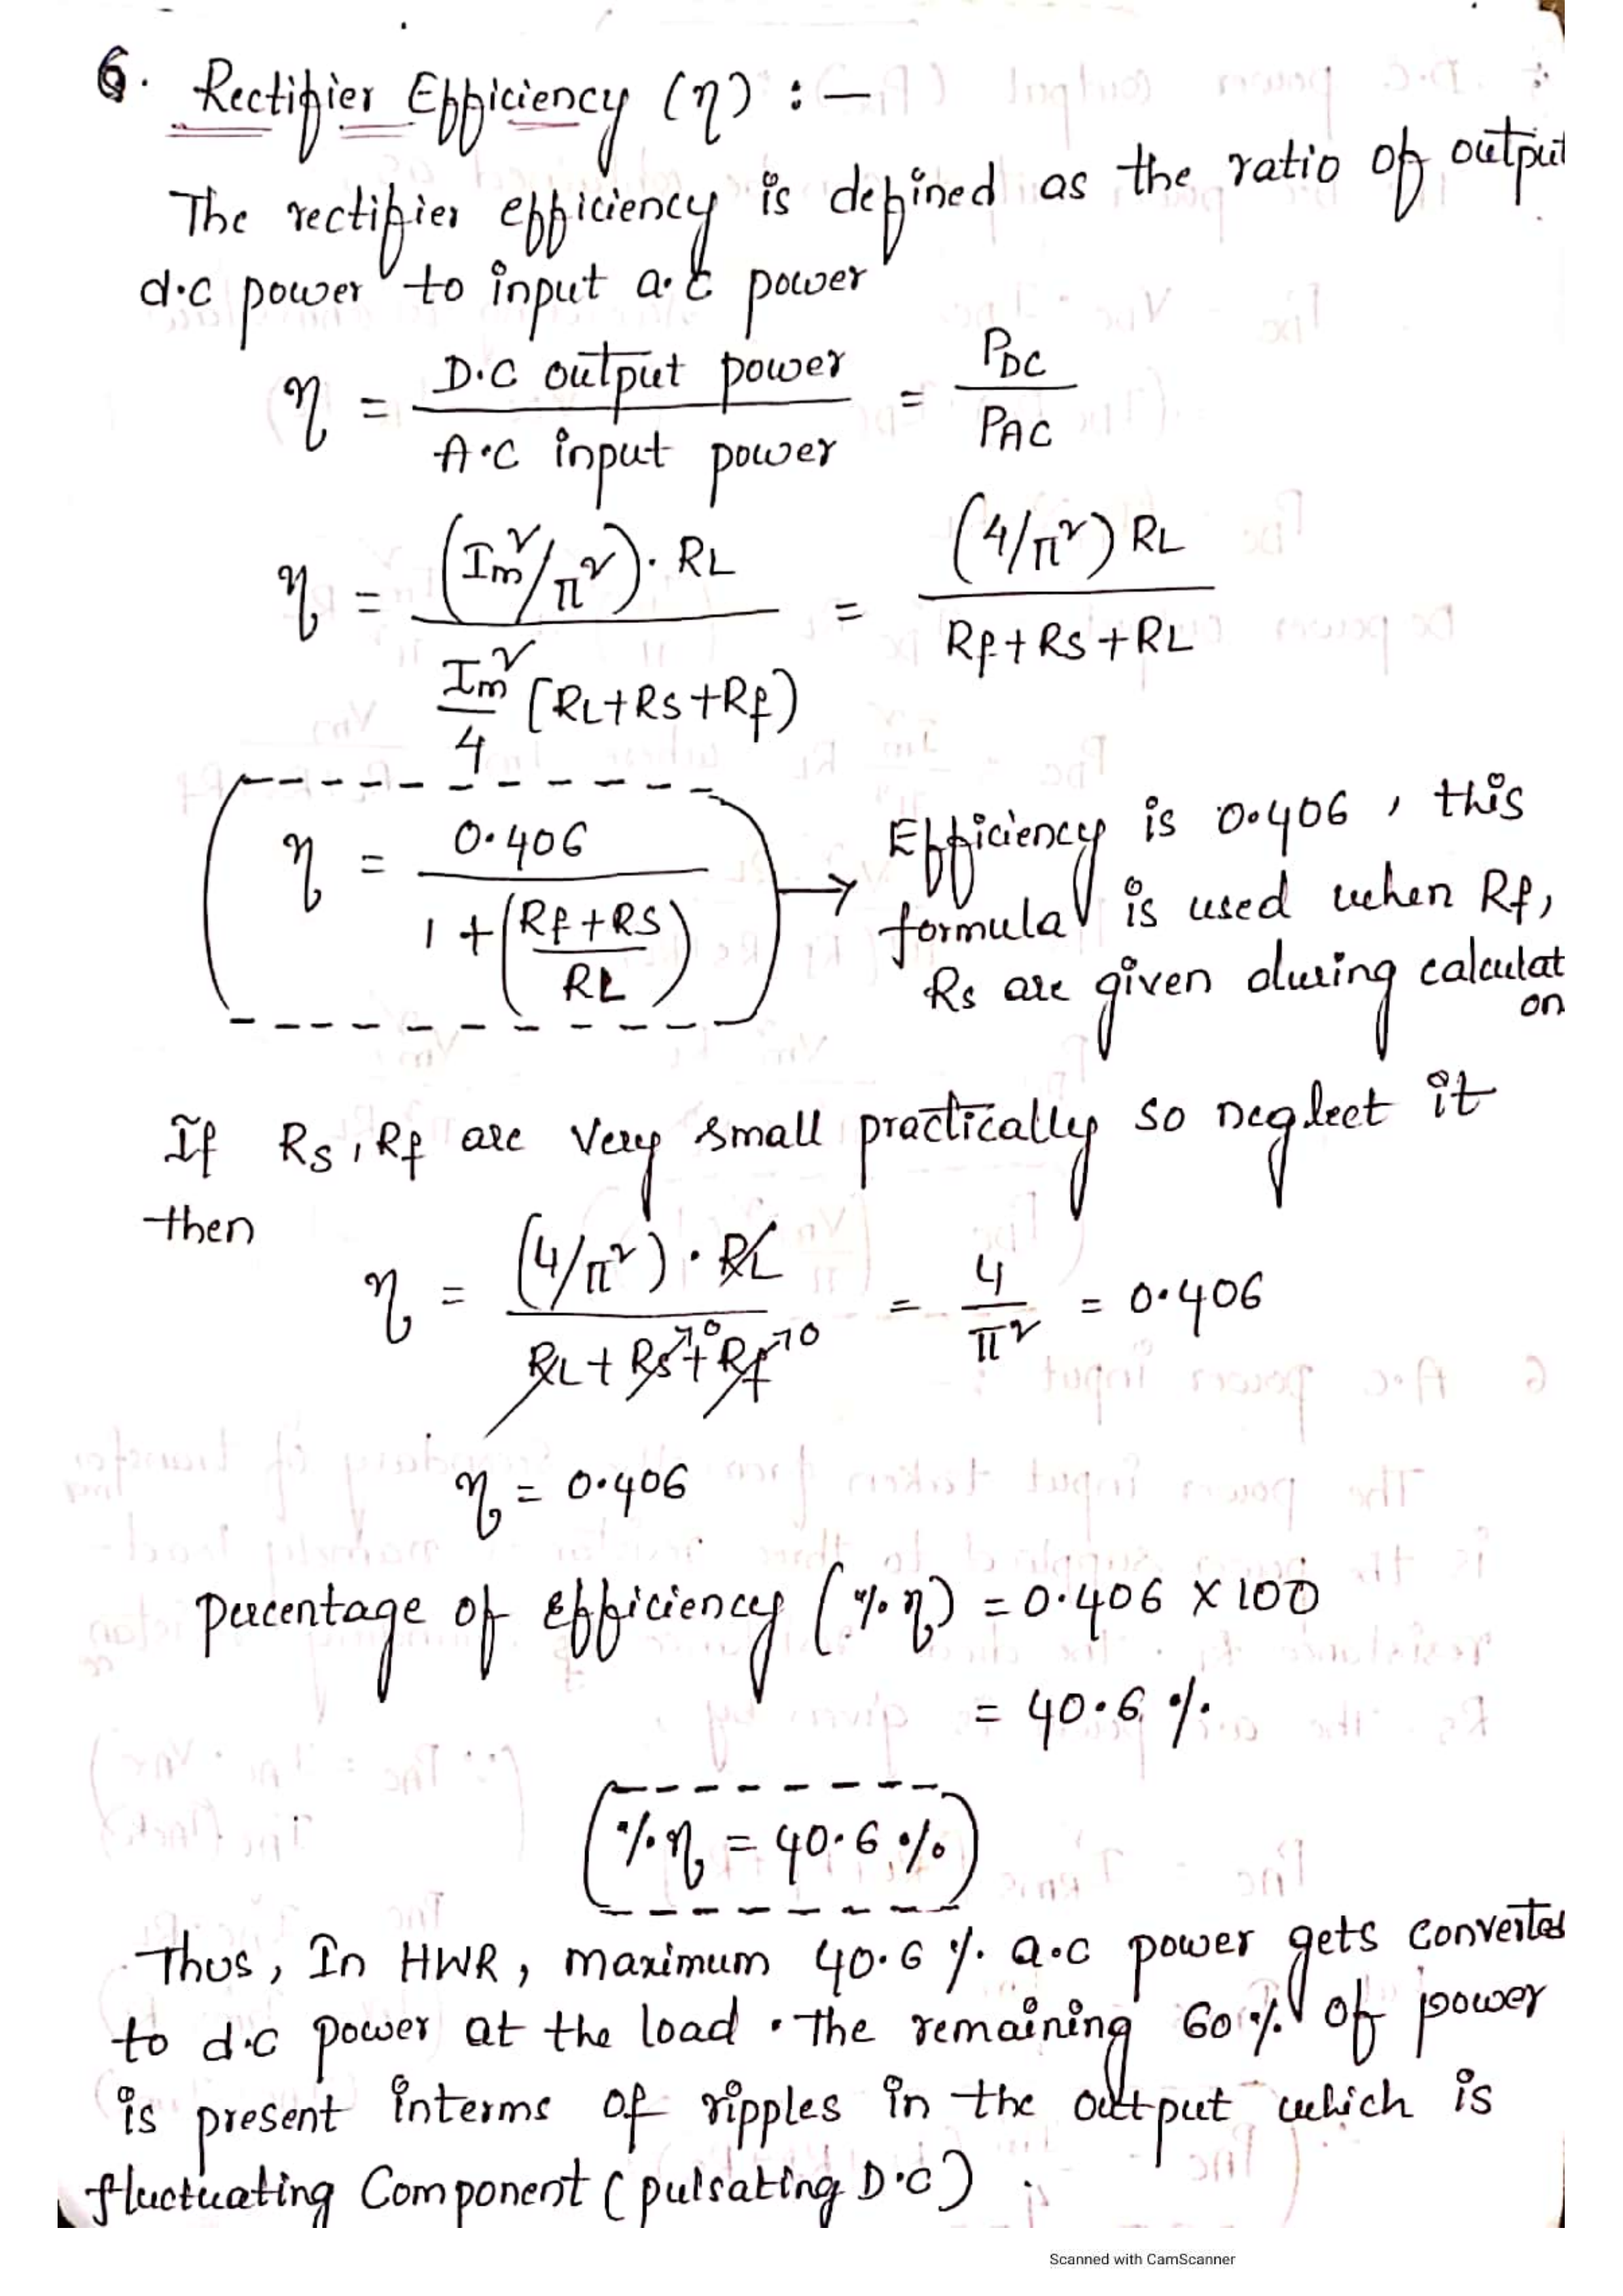 6. Rectifier Efficiency (η) : —
The rectifier efficiency is defined as the ratio of output
d.c power to input a.c power
η = D.C output power / A.C input power = PDC / PAC
η = (Im²/π²) . RL / Im²/4 [RL+RS+Rf) = (4/π²) RL / Rf+RS+RL
η = 0.406 / 1 + (Rf+RS / RL) → Efficiency is 0.406 , this
formula is used when Rf,
Rs are given during calculat
on
If RS, Rf are very small practically so neglect it
then
η = (4/π²) . RL / RL + RS→0 + Rf→0 = 4 / π² = 0.406
η = 0.406
percentage of efficiency (% η) = 0.406 X 100
= 40.6 %
% η = 40.6 %
Thus, In HWR, maximum 40.6 % a.c power gets converted
to d.c power at the load . the remaining 60 % of power
is present interms of ripples in the output which is
fluctuating Component (pulsating D.C) .
Scanned with CamScanner